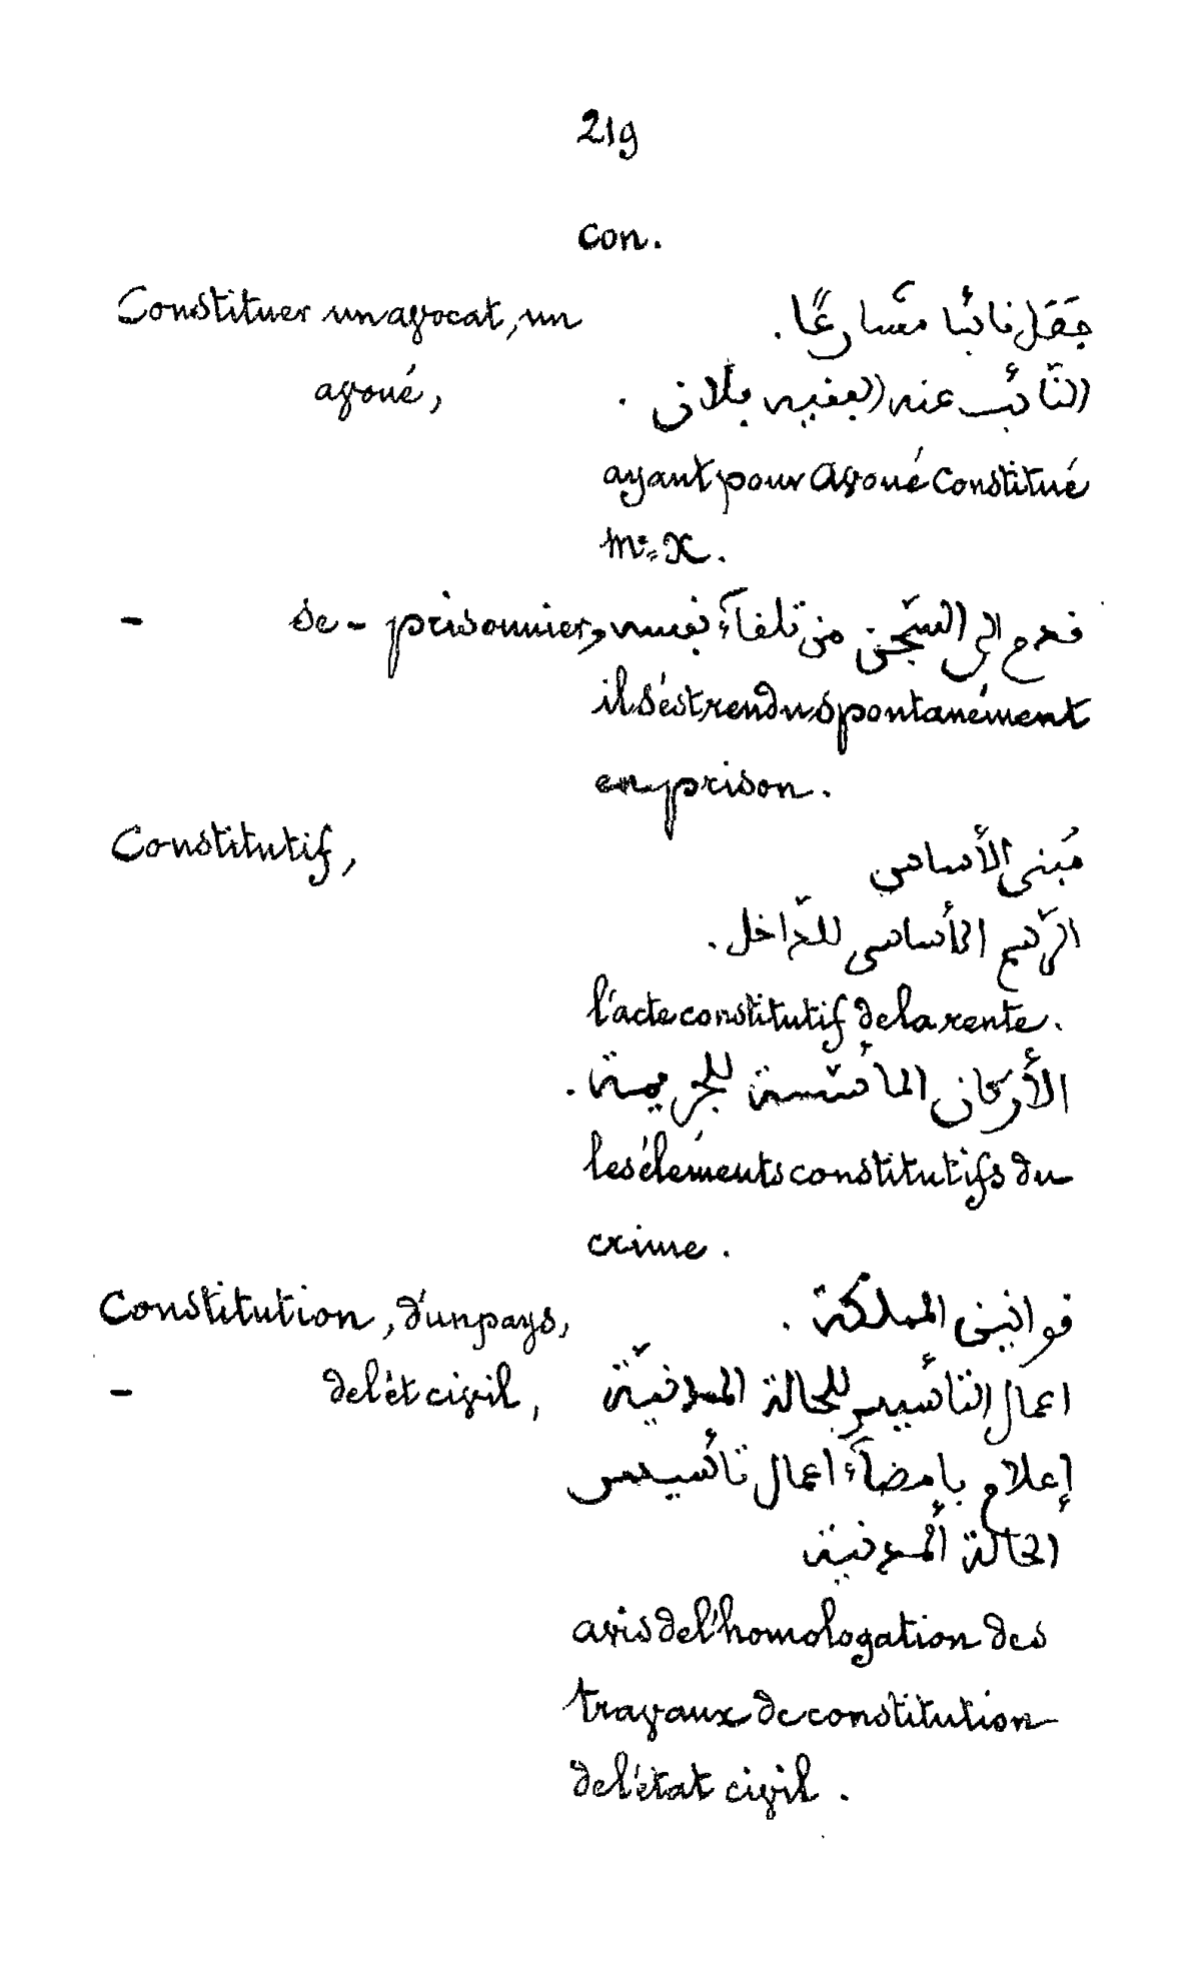 219
con.
Constituer un avocat, un جَعَل نائبًا مشارعًا.
avoué, النّائب عنه الفقيه فلان.
ayant pour avoué constitué
Me X.
- se - prisonnier, قدم الى السّجن من تلقآء نفسه
il s'est rendu spontanément
en prison.
Constitutif, مُبنى الأساس
الرّسم الأساسى للدّاخل.
l'acte constitutif de la rente.
الأركان المأسّسة للجريمة.
les éléments constitutifs du
crime.
Constitution, d'un pays, قوانين المملكة.
- de l'ét civil, اعمال التأسيس للحالة المدنيّة
إعلام بإمضآء اعمال تأسيس
الحالة المدنية
avis de l'homologation des
travaux de constitution
de l'état civil.